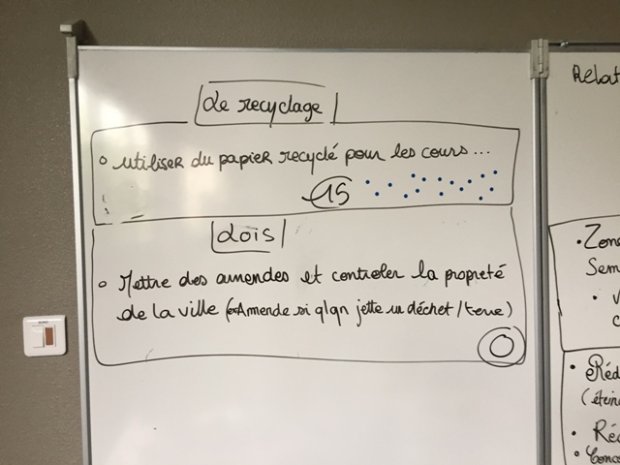 Le recyclage
• utiliser du papier recyclé pour les cours...
15
Lois
• Mettre des amendes et controler la propreté
de la ville (exAmende si qlqn jette un déchet/terre)
0
Relat
• Zone
Sem
•
• Réd
(étein
• Réc